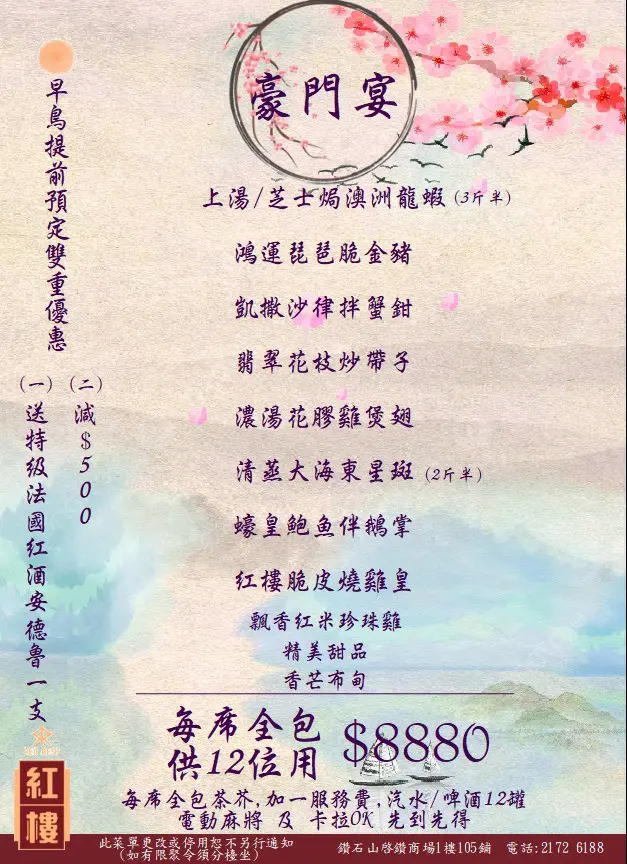 豪門宴
早鳥提前預定雙重優惠
(一)送特级法國红酒安德魯一支
(二)減$500
上湯/芝士焗澳洲龍蝦(3斤半)
鴻運琵琶脆金豬
凱撒沙律拌蟹鉗
翡翠花枝炒帶子
濃湯花膠雞煲翅
清蒸大海東星斑(2斤半)
蠔皇鮑魚伴鵝掌
紅樓脆皮燒雞皇
飄香红米珍珠雞
精美甜品
香芒布甸
每席全包
供12位用
$8880
每席全包茶芥,加一服務費,汽水/啤酒12罐
電動麻將 及 卡拉OK 先到先得
紅樓
此菜單更改或停用恕不另行通知
(如有限聚令須分檯坐)
鑽石山啓鑽商場1樓105鋪 電話:2172 6188